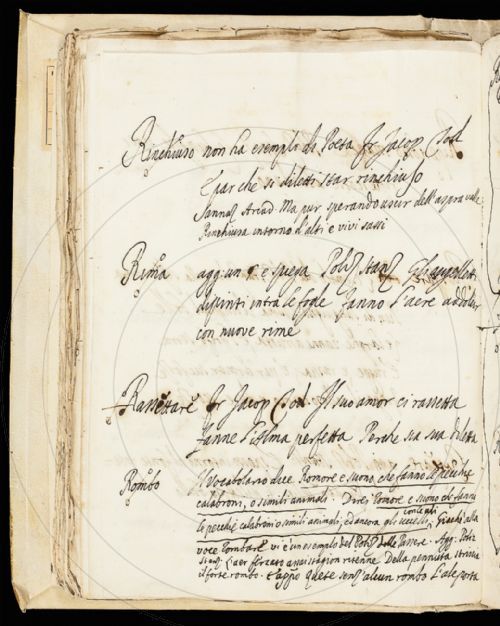 Rinchiuso non ha esempli di Poeta Fr Jacop. Tod.
E par che si diletti star rinchiuso
Sannaz Arcad. Ma pur sperando uscir dell'aspra valle
Rinchiusa intorno d'alti e vivi sassi
Rima agg. un § e spiega Poliz Stanz Gli augelletti
dipinti intra le foglie Fanno l'aere addolcir
con nuove rime
Rassettare Fr Jacop Tod. Il suo amor ci rassetta
Fanne l'alma perfetta Perche sia sua diletta
Rombo Il Vocabolario dice Romore e suono, che fanno le pecchie
calabroni, o simili animali. Direi Romore e suono che fanno
le pecchie calabroni o simili animali, ed ancora gli uccelli, con le ali Giacchè alla
voce Rombare vi è un esemplo del Poliz delle Passere. Agg. Poliz
Stanz. L'aer ferzato assai stagion ritenne Della pennuta striscia
il forte rombo. E appo Quete senz'alcun rombo l'ale porta